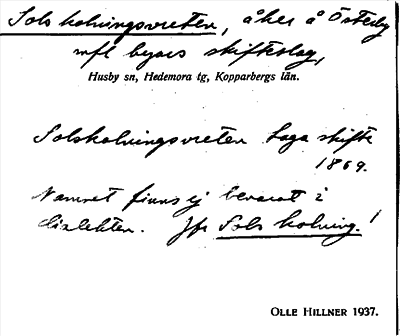 Solskolningsvreten, åker å Österby
mfl byars skifteslag,
Husby sn, Hedemora tg, Kopparbergs län.
Solskolningsvreten Laga skifte
1869.
Namnet finns ej bevarat i
dialekten. Jfr Sols kolning!
OLLE HILLNER 1937.